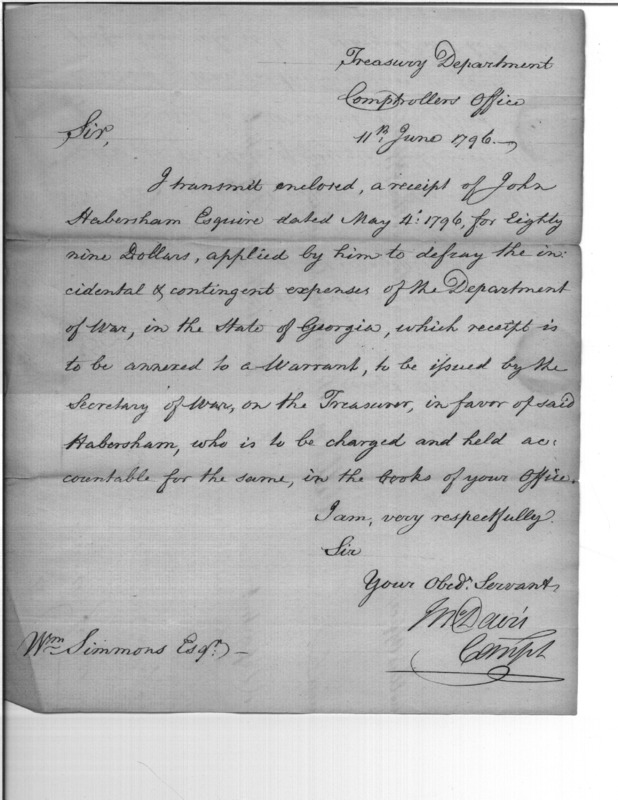 Treasury Department
Comptrollers Office
11th June 1796.
Sir,
I transmit enclosed, a receipt of John
Habersham Esquire dated May 4: 1796, for Eighty
nine Dollars, applied by him to defray the in:
cidental & contingent expenses of the Department
of War, in the State of Georgia, which receipt is
to be annexed to a Warrant, to be issued by the
Secretary of War, on the Treasurer, in favor of said
Habersham, who is to be charged and held ac:
countable for the same, in the books of your Office.
I am, very respectfully.
Sir
Your Obedt. Servant,
Davis
Compt
Wm Simmons Esqr. —